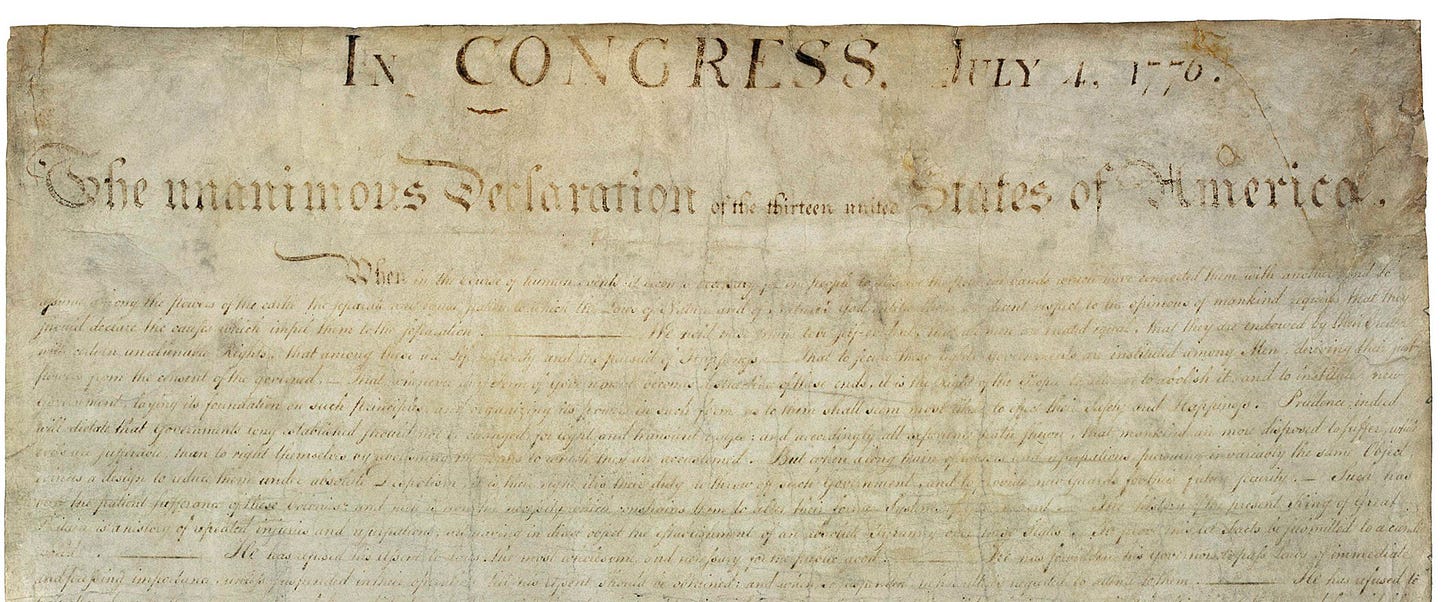 In CONGRESS. July 4, 1776.
The unanimous Declaration of the thirteen united States of America.
When in the Course of human events, it becomes necessary for one people to dissolve the political bands which have connected them with another, and to
assume among the powers of the earth, the separate and equal station to which the Laws of Nature and of Nature's God entitle them, a decent respect to the opinions of mankind requires that they
should declare the causes which impel them to the separation. — We hold these truths to be self-evident, that all men are created equal, that they are endowed by their Creator
with certain unalienable Rights, that among these are Life, Liberty and the pursuit of Happiness. — That to secure these rights, Governments are instituted among Men, deriving their just
powers from the consent of the governed, — That whenever any Form of Government becomes destructive of these ends, it is the Right of the People to alter or to abolish it, and to institute new
Government, laying its foundation on such principles and organizing its powers in such form, as to them shall seem most likely to effect their Safety and Happiness. Prudence, indeed,
will dictate that Governments long established should not be changed for light and transient causes; and accordingly all experience hath shewn, that mankind are more disposed to suffer, while
evils are sufferable, than to right themselves by abolishing the forms to which they are accustomed. But when a long train of abuses and usurpations, pursuing invariably the same Object
evinces a design to reduce them under absolute Despotism, it is their right, it is their duty, to throw off such Government, and to provide new Guards for their future security. — Such has
been the patient sufferance of these Colonies; and such is now the necessity which constrains them to alter their former Systems of Government. The history of the present King of Great
Britain is a history of repeated injuries and usurpations, all having in direct object the establishment of an absolute Tyranny over these States. To prove this, let Facts be submitted to a candid
world. — He has refused his Assent to Laws, the most wholesome and necessary for the public good. — He has forbidden his Governors to pass Laws of immediate
and pressing importance, unless suspended in their operation till his Assent should be obtained; and when so suspended, he has utterly neglected to attend to them. — He has refused to